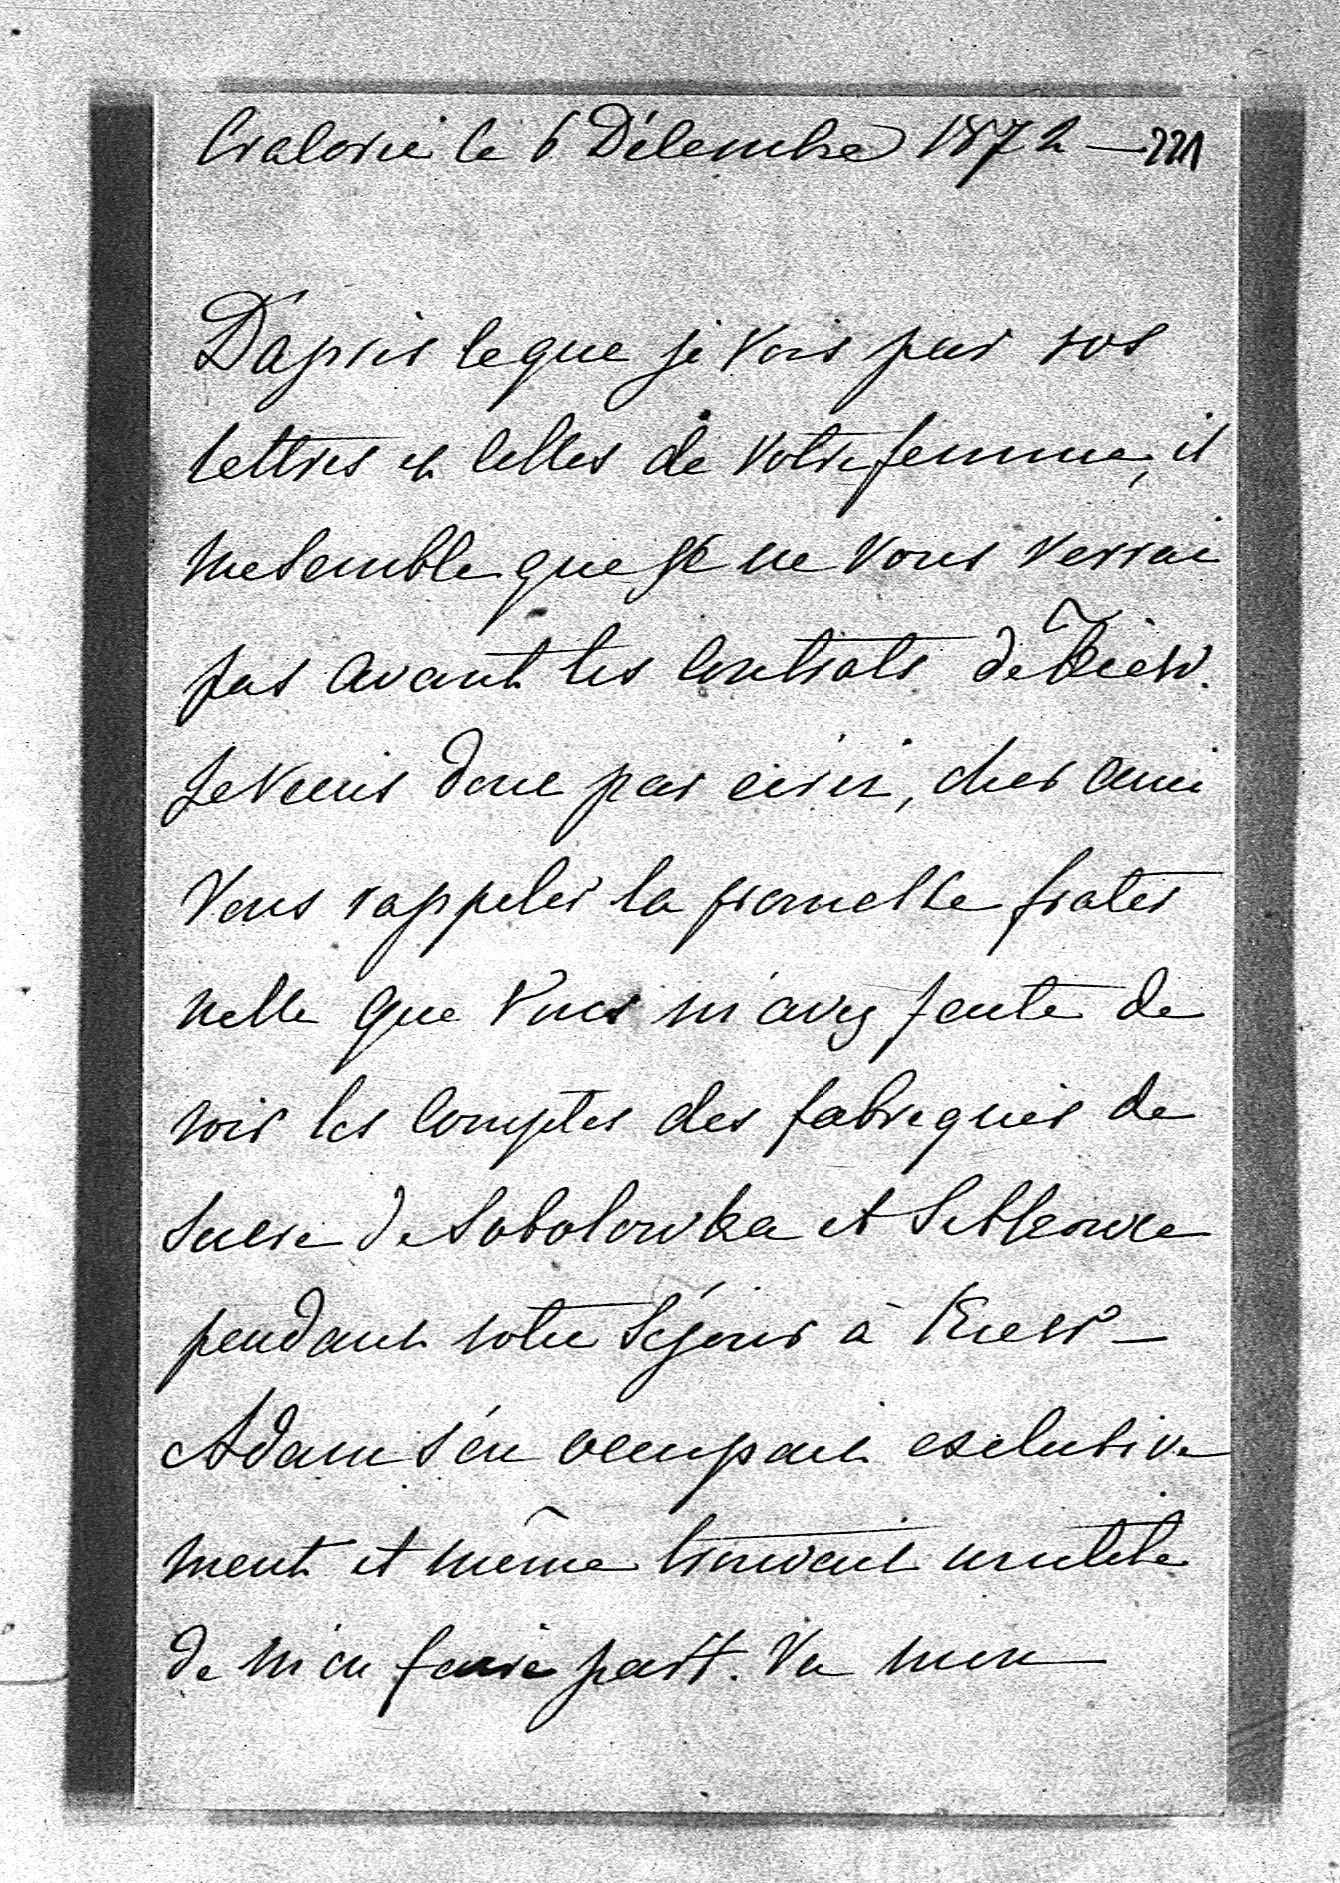 Cracovie le 6 Décembre 1872 — 221
D'après ce que je vois par vos
lettres et celles de votre femme, il
me semble que je ne vous verrai
pas avant les contrats de Kiew.
Je viens donc par écrit, cher ami
vous rappeler la promesse frater
nelle que vous m'avez faite de
voir les comptes des fabriques de
sucre de Sobolowka et Sitkowce
pendant votre séjour à Kiew —
Adam s'en occupait exclusive
ment et même trouvait inutile
de m'en faire part. Vu mon